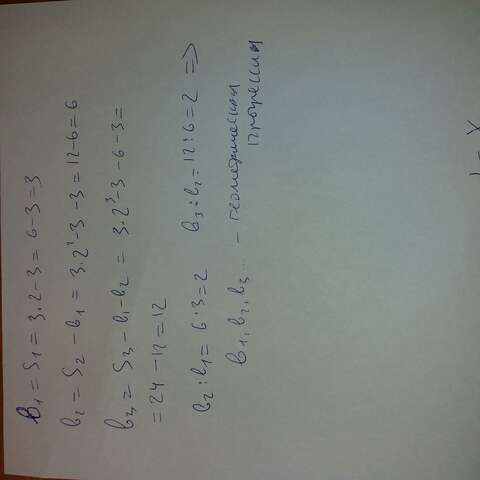 b₁ = S₁ = 3·2-3 = 6-3 = 3
b₂ = S₂ - b₁ = 3·2²-3-3 = 12-6 = 6
b₃ = S₃ - b₁ - b₂ = 3·2³-3-6-3=
= 24-12 = 12
b₂ : b₁ = 6:3 = 2 b₃ : b₂ = 12:6 = 2 =>
b₁, b₂, b₃... - геометрическая
прогрессия